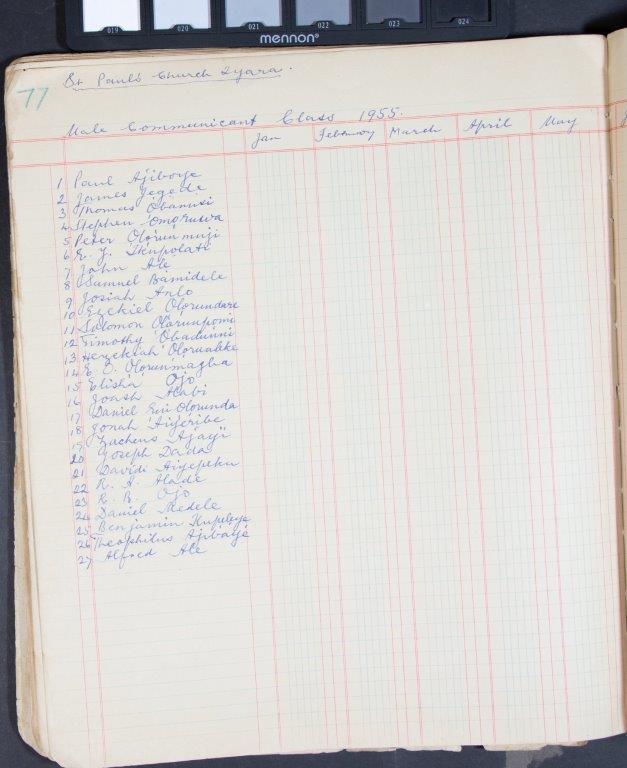 019 020 021 022 023 024
mennon
77
St Paul's Church Iyara.
Male Communicant Class 1955.
Jan February March April May
1 Paul Ajiboye
2 James Jegede
3 Thomas Obanusi
4 Stephen Omoruwa
5 Peter Olorunmuji
6 E. J. Ikupolati
7 John Ale
8 Samuel Bamidele
9 Josiah
10 Ezekiel Olorundare
11 Solomon Olorunpomi
12 Timothy Obadunni
13 Hezekiah
14 E. O. Olorunmagba
15 Elisha Ojo
16 Joash Alabi
17 Daniel Olorunda
18 Jonah Aiyeribe
19 Zacheus Ajayi
20 Joseph Dada
21 David Aiyepeku
22 R. A. Alade
23 R. B. Ojo
24 Daniel Medele
25 Benjamin
26 Theophilus Ajibaye
27 Alfred Ale